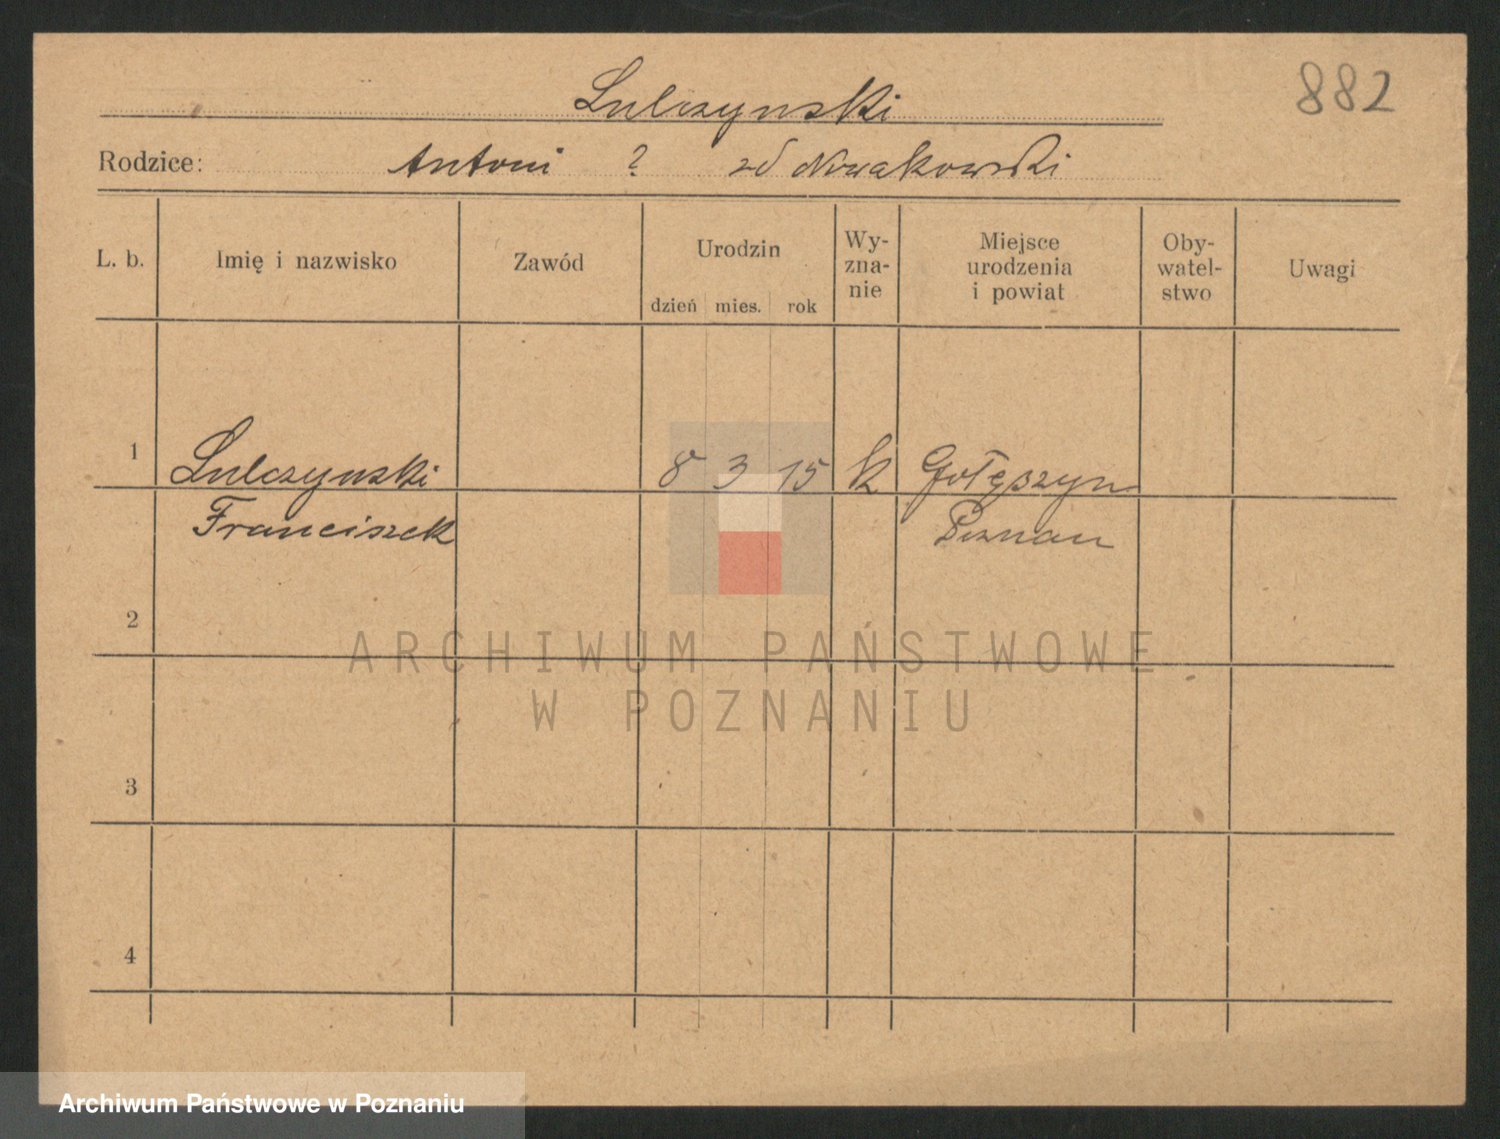 882
Lulczynski
Rodzice: Antoni ? zd Nowakowski
L. b. Imię i nazwisko Zawód Urodzin dzień mies. rok Wy-zna-nie Miejsce urodzenia i powiat Oby-watel-stwo Uwagi
1 Lulczynski 8 3 15 k Gołęszyn
Franciszek Poznan
2
ARCHIWUM PAŃSTWOWE
W POZNANIU
3
4
Archiwum Państwowe w Poznaniu